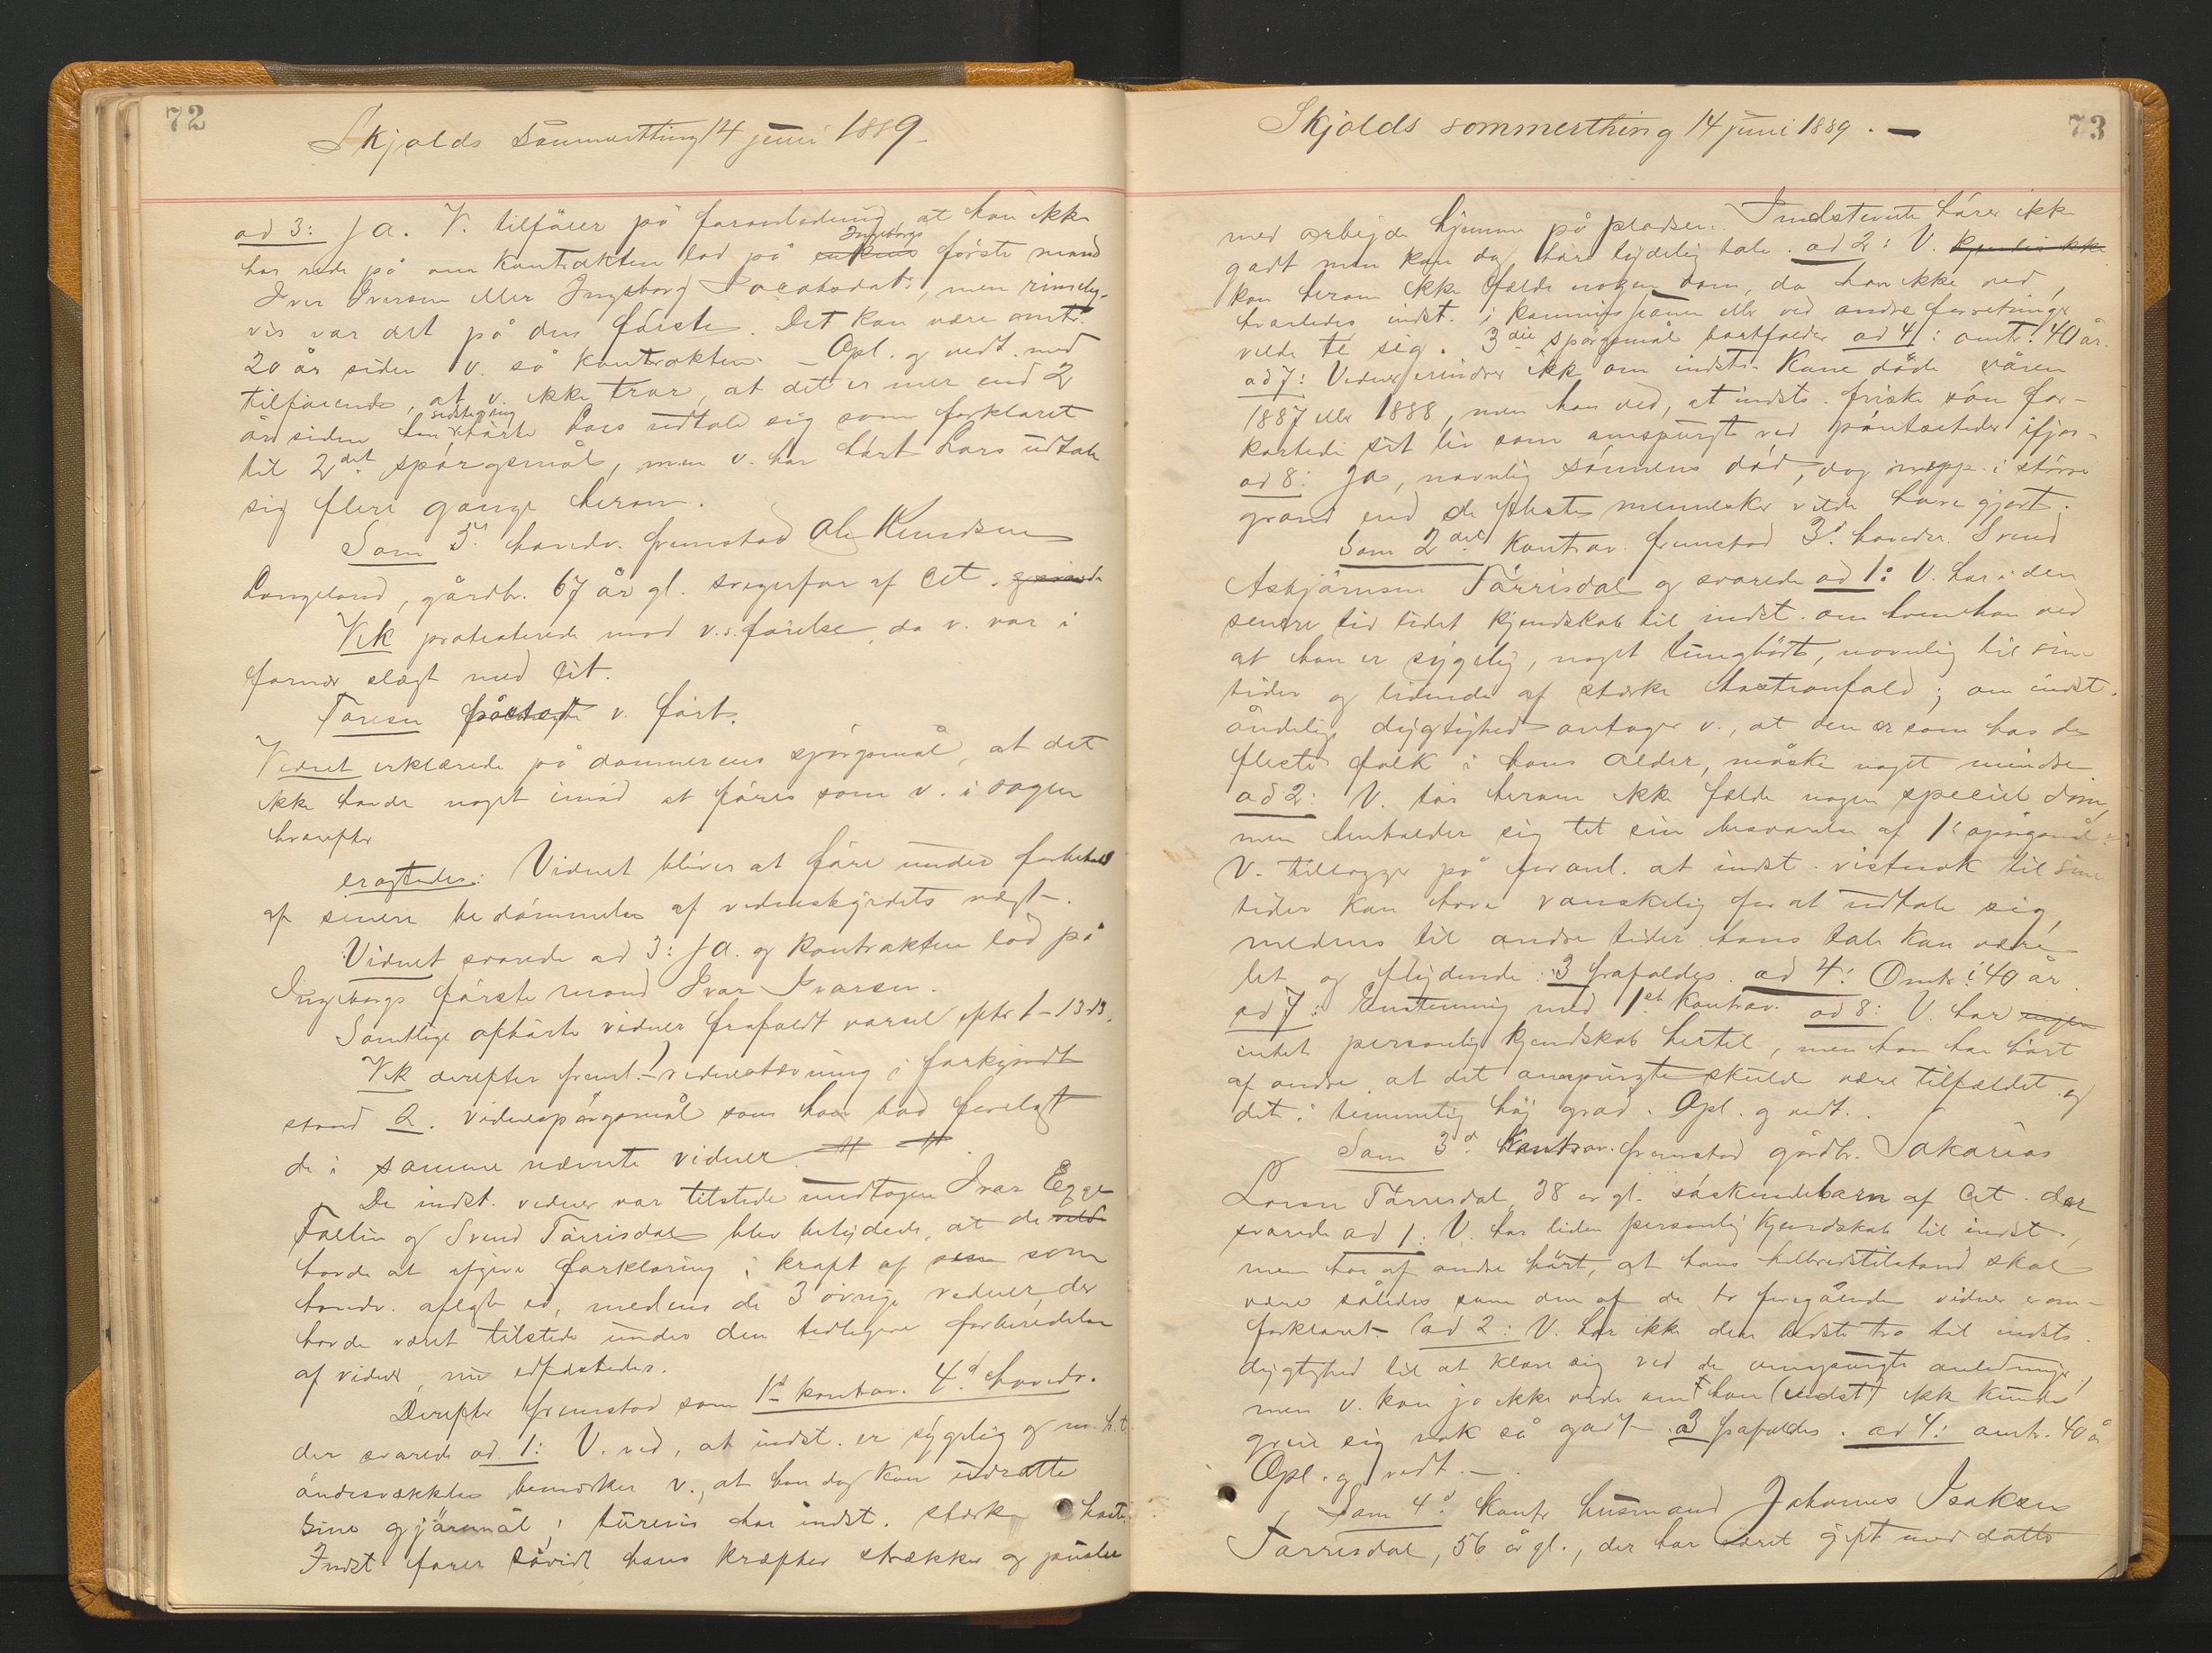 72
Skjolds sommerthing 14 juni 1889.
ad 3: Ja. V. tilföier på foranledning, at han ikke
har rede på om kontrakten lød på enkens Ingeborgs förste mand
Iver Iversen eller Ingeborg, men rimelig-
vis var det på den förste. Det kan være omtr.
20 år siden v. så kontrakten. – Opl. og vedt. med
tilföiende, at v. ikke tror, at det er mer end 2
år siden han sidste gang hørte Lars udtale sig som forklaret
til 2det spörgsmål, men v. har hört Lars udtale
sig flere gange herom.
Som 5. hovedv. fremstod Ole Knudsen
Langeland, gårdbr. 67 år gl. svigerfar af Cit.
Vik protesterede mod v.s. förelse, da v. var i
for nær slægt med Cit.
Toresen påstod v. fört.
Vidnet erklærede på dommerens spörgsmål, at det
ikke havde noget imod at föres som v. i sagen
hvorefter
eragtedes: Vidnet bliver at före under forbehold
af senere bedömmelse af vidneskyrdets vægt –.
Vidnet svarede ad 3: Ja. og kontrakten lød på
Ingeborgs förste mand Ivar Ivarsen.
Samtlige afhörte vidner frafaldt varsel efter 1-13-13.
Vik derefter freml. 1 vidnestævning i forkyndt
stand 2. vidnespörgsmål som han bad forelagt
de i samme nævnte vidner.
De indst. vidner var tilstede undtagen Ivar Egge
Fallin og Svend Tørrisdal blev betydede, at de vilde
havde at afgive forklaring i kraft af som
hovedv. aflagt ed, medens de 3 övrige vidner, der
havde været tilstede under den tidligere forberedelse
af vidner, nu edfæstedes.
Derefter fremstod som 1st kontrav. 4d hovedv.
der svarede ad 1: V. ved, at indst. er sygelig og m. h. t.
åndssvækkelse bemærker v., at han dog kan udrette
sine gjöremål; turevis har indst. stærk hoste.
Indst. farer såvidt hans kræfter strækker og pusler
Skjolds sommerthing 14 juni 1889. –
73
med arbejde hjemme på pladsen. Indstevnte hörer ikke
godt men kan dog höre tydelig tale. ad 2: V. kjender ikke
kan herom ikke fælde nogen dom, da han ikke ved,
hvorledes indst. i kommissioner eller ved andre forretninger
vilde te sig. 3die spörgsmål bortfalder ad 4: omtr. 40 år.
ad 7: Vidnet erindrer ikke om indsts. Kone døde våren
1887 eller 1888, men han ved, at indsts. friske sön for-
kortede sit liv som omspurgt ved ifjor.
ad 8: Ja, navnlig sönnens död, dog neppe i större
grad end de fleste mennesker vilde have gjort.
Som 2det kontrav. fremstod 3. hovedv. Svend
Asbjörnsen Tørrisdal og svarede ad 1: V. har i den
senere tid lidet kjendskab til indst. om hvem han ved
at han er sygelig, noget tunghört, navnlig til sine
tider og lidende af stærke hosteanfald; om indst.
åndelige dygtighed antager v., at den er som hos de
fleste folk i hans alder, måske noget mindre.
ad 2: V. tör herom ikke fælde nogen speciel dom,
men henholder sig til sin besvarelse af 1. spörgsmål.
V. tillægger på foranl. at indst. vistnok til sine
tider kan have vanskelig for at udtale sig,
medens til andre tider hans tale kan være
let og flydende. 3 frafaldes. ad 4: Omtr. 40 år.
ad 7: Enstemmig med 1st kontrav. ad 8: V. har ingen
intet personlig kjendskab hertil, men han har hört
af andre at det omspurgte skulde være tilfældet og
det i temmelig höj grad. Opl. og vedt.
Som 3d Kontrav. fremstod gårdbr. Sakarias
Larsen Tørrisdal, 38 år gl. söskendebarn af Cit. der
svarede ad 1: V. har liden personlig kjendskab til indst.,
men har af andre hört, at hans helbredstilstand skal
være således som den af de to foregående vidner er om-
forklaret. ad 2: V. har ikke den bedste tro til indsts.
dygtighed til at klare sig ved de omspurgte anledninger,
men v. kan jo ikke vide om han (indst) ikke kunde
greie sig nok så godt. 3 frafaldes. ad 4: omtr. 40 år
Opl. og vedt. –
Som 4d Kontr. husmand Johannes Isaksen
Tørrisdal, 56 år gl., der har været gift med datter